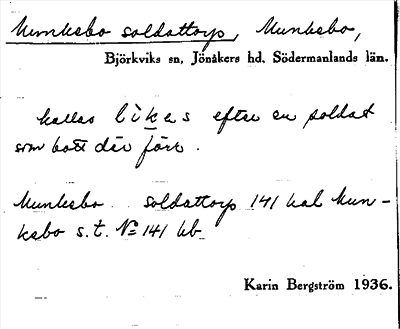 Munkebo soldattorp, Munkebo,
Björkviks sn, Jönåkers hd, Södermanlands län.
kallas likas efter en soldat
som bott där förr.
Munkebo soldattorp 141 kal Mun-
kebo s.t. No 141 kb
Karin Bergström 1936.